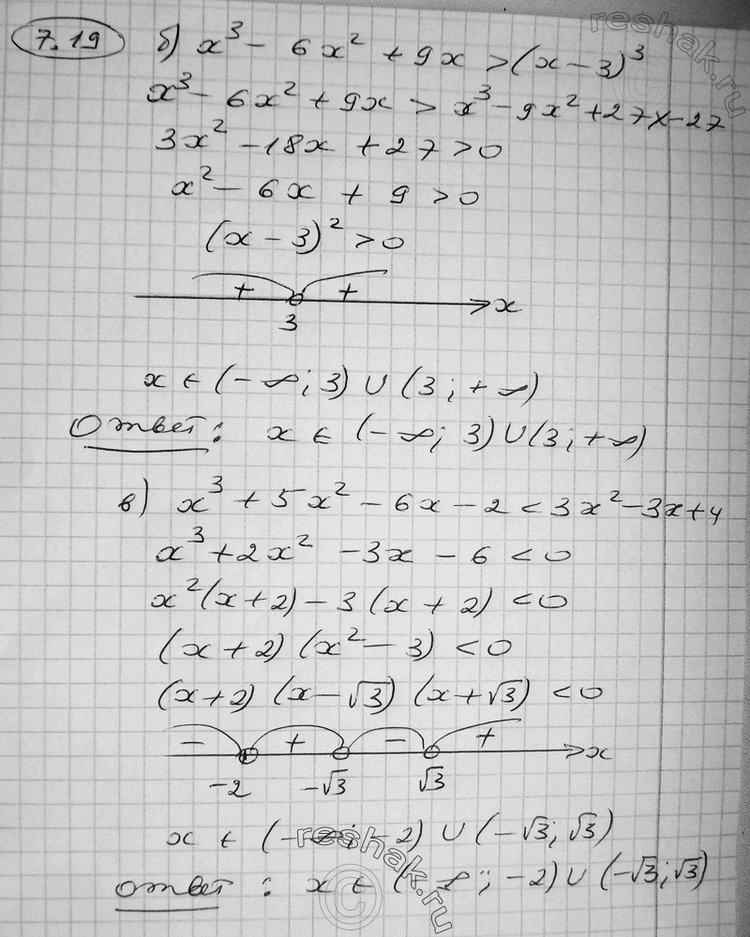 reshak.ru
7.19 б) x³ - 6x² + 9x > (x - 3)³
x³ - 6x² + 9x > x³ - 9x² + 27x - 27
3x² - 18x + 27 > 0
x² - 6x + 9 > 0
(x - 3)² > 0
+ + x
3
x ∈ (-∞; 3) ∪ (3; +∞)
Ответ: x ∈ (-∞; 3) ∪ (3; +∞)
в) x³ + 5x² - 6x - 2 < 3x² - 3x + 4
x³ + 2x² - 3x - 6 < 0
x²(x + 2) - 3(x + 2) < 0
(x + 2)(x² - 3) < 0
(x + 2)(x - √3)(x + √3) < 0
- + - + x
-2 -√3 √3
x ∈ (-∞; -2) ∪ (-√3; √3)
Ответ: x ∈ (-∞; -2) ∪ (-√3; √3)
reshak.ru
©